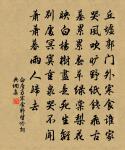 丘墟郭門外寒食誰家
哭風吹曠野紙錢飛古
墓累累春草綠棠梨花
映白楊樹盡是死生離
別處冥寞重泉哭不聞
蕭蕭暮雨人歸去
白居易寒食野望吟